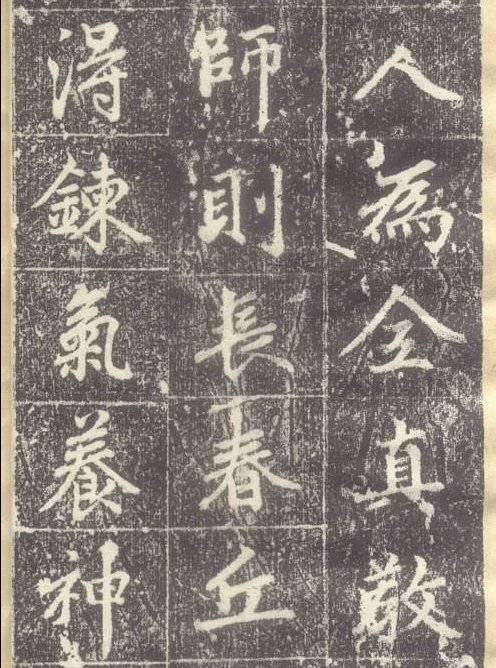 人為全真敬
師則長春丘
得鍊氣養神